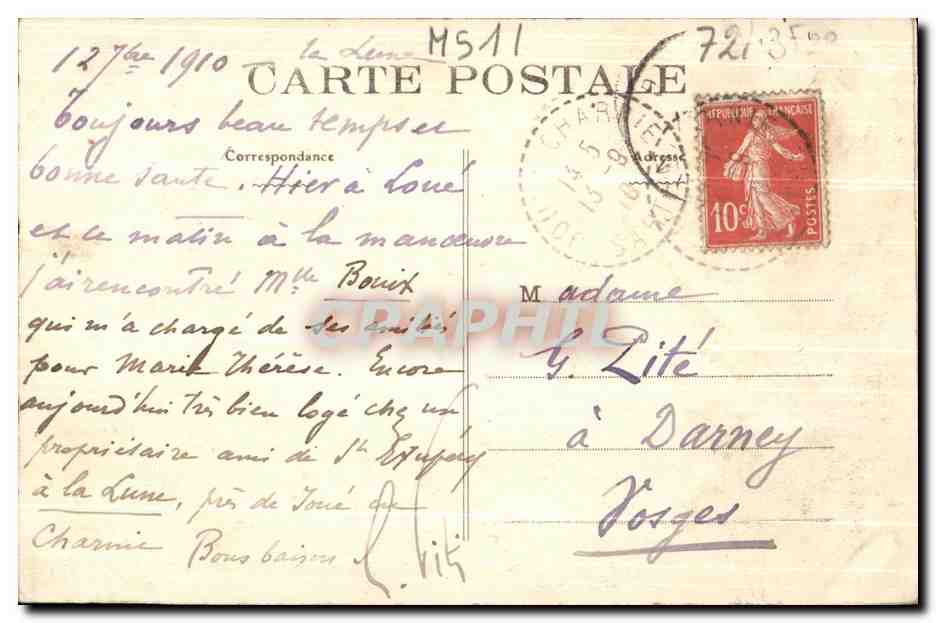 M511
721
12 7bre 1910 — la Lune
CARTE POSTALE
Toujours beau temps et
Correspondance
Adresse
bonne santé. Hier à Loué
et ce matin à la manœuvre
j'ai rencontré Mlle Bouix
qui m'a chargé de ses amitiés
pour Marie Thérèse. Encore
aujourd'hui très bien logé chez un
propriétaire ami de St Exupéry
à la Lune, près de Joué en
Charnie Bons baisers
G. Pité
RÉPUBLIQUE FRANÇAISE
10c
POSTES
JOUÉ
CHARNIE
SARTHE
13-9
10
Madame
G. Pité
à Darney
Vosges
CPAPHIL